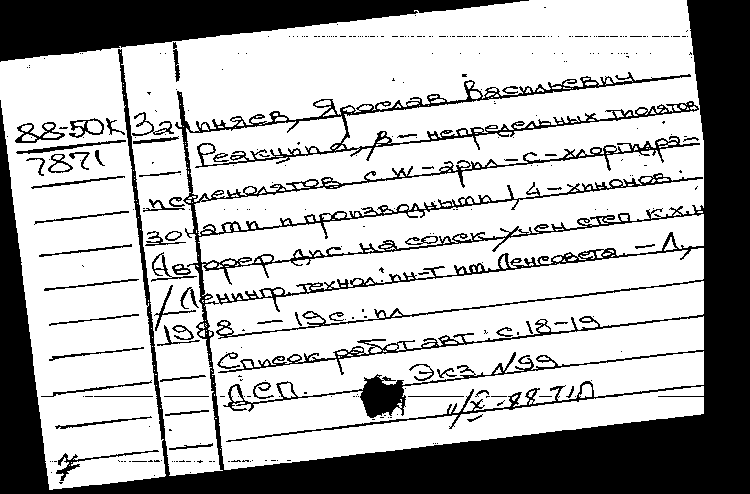 88-50К Зачиняев, Ярослав Васильевич
7871
Реакции α, β – непредельных тиолятов
и селенолятов с ω – арил – С – хлоргидра=
зонами и производными 1,4 – хинонов :
Автореф. дис. на соиск. учен. степ. к.х.н
/ Ленингр. технол. ин-т им. Ленсовета. – Л.,
1988. – 19с. : ил
Список работ авт : с. 18-19
ДСП. Экз. №99
11/X-88-71П
7